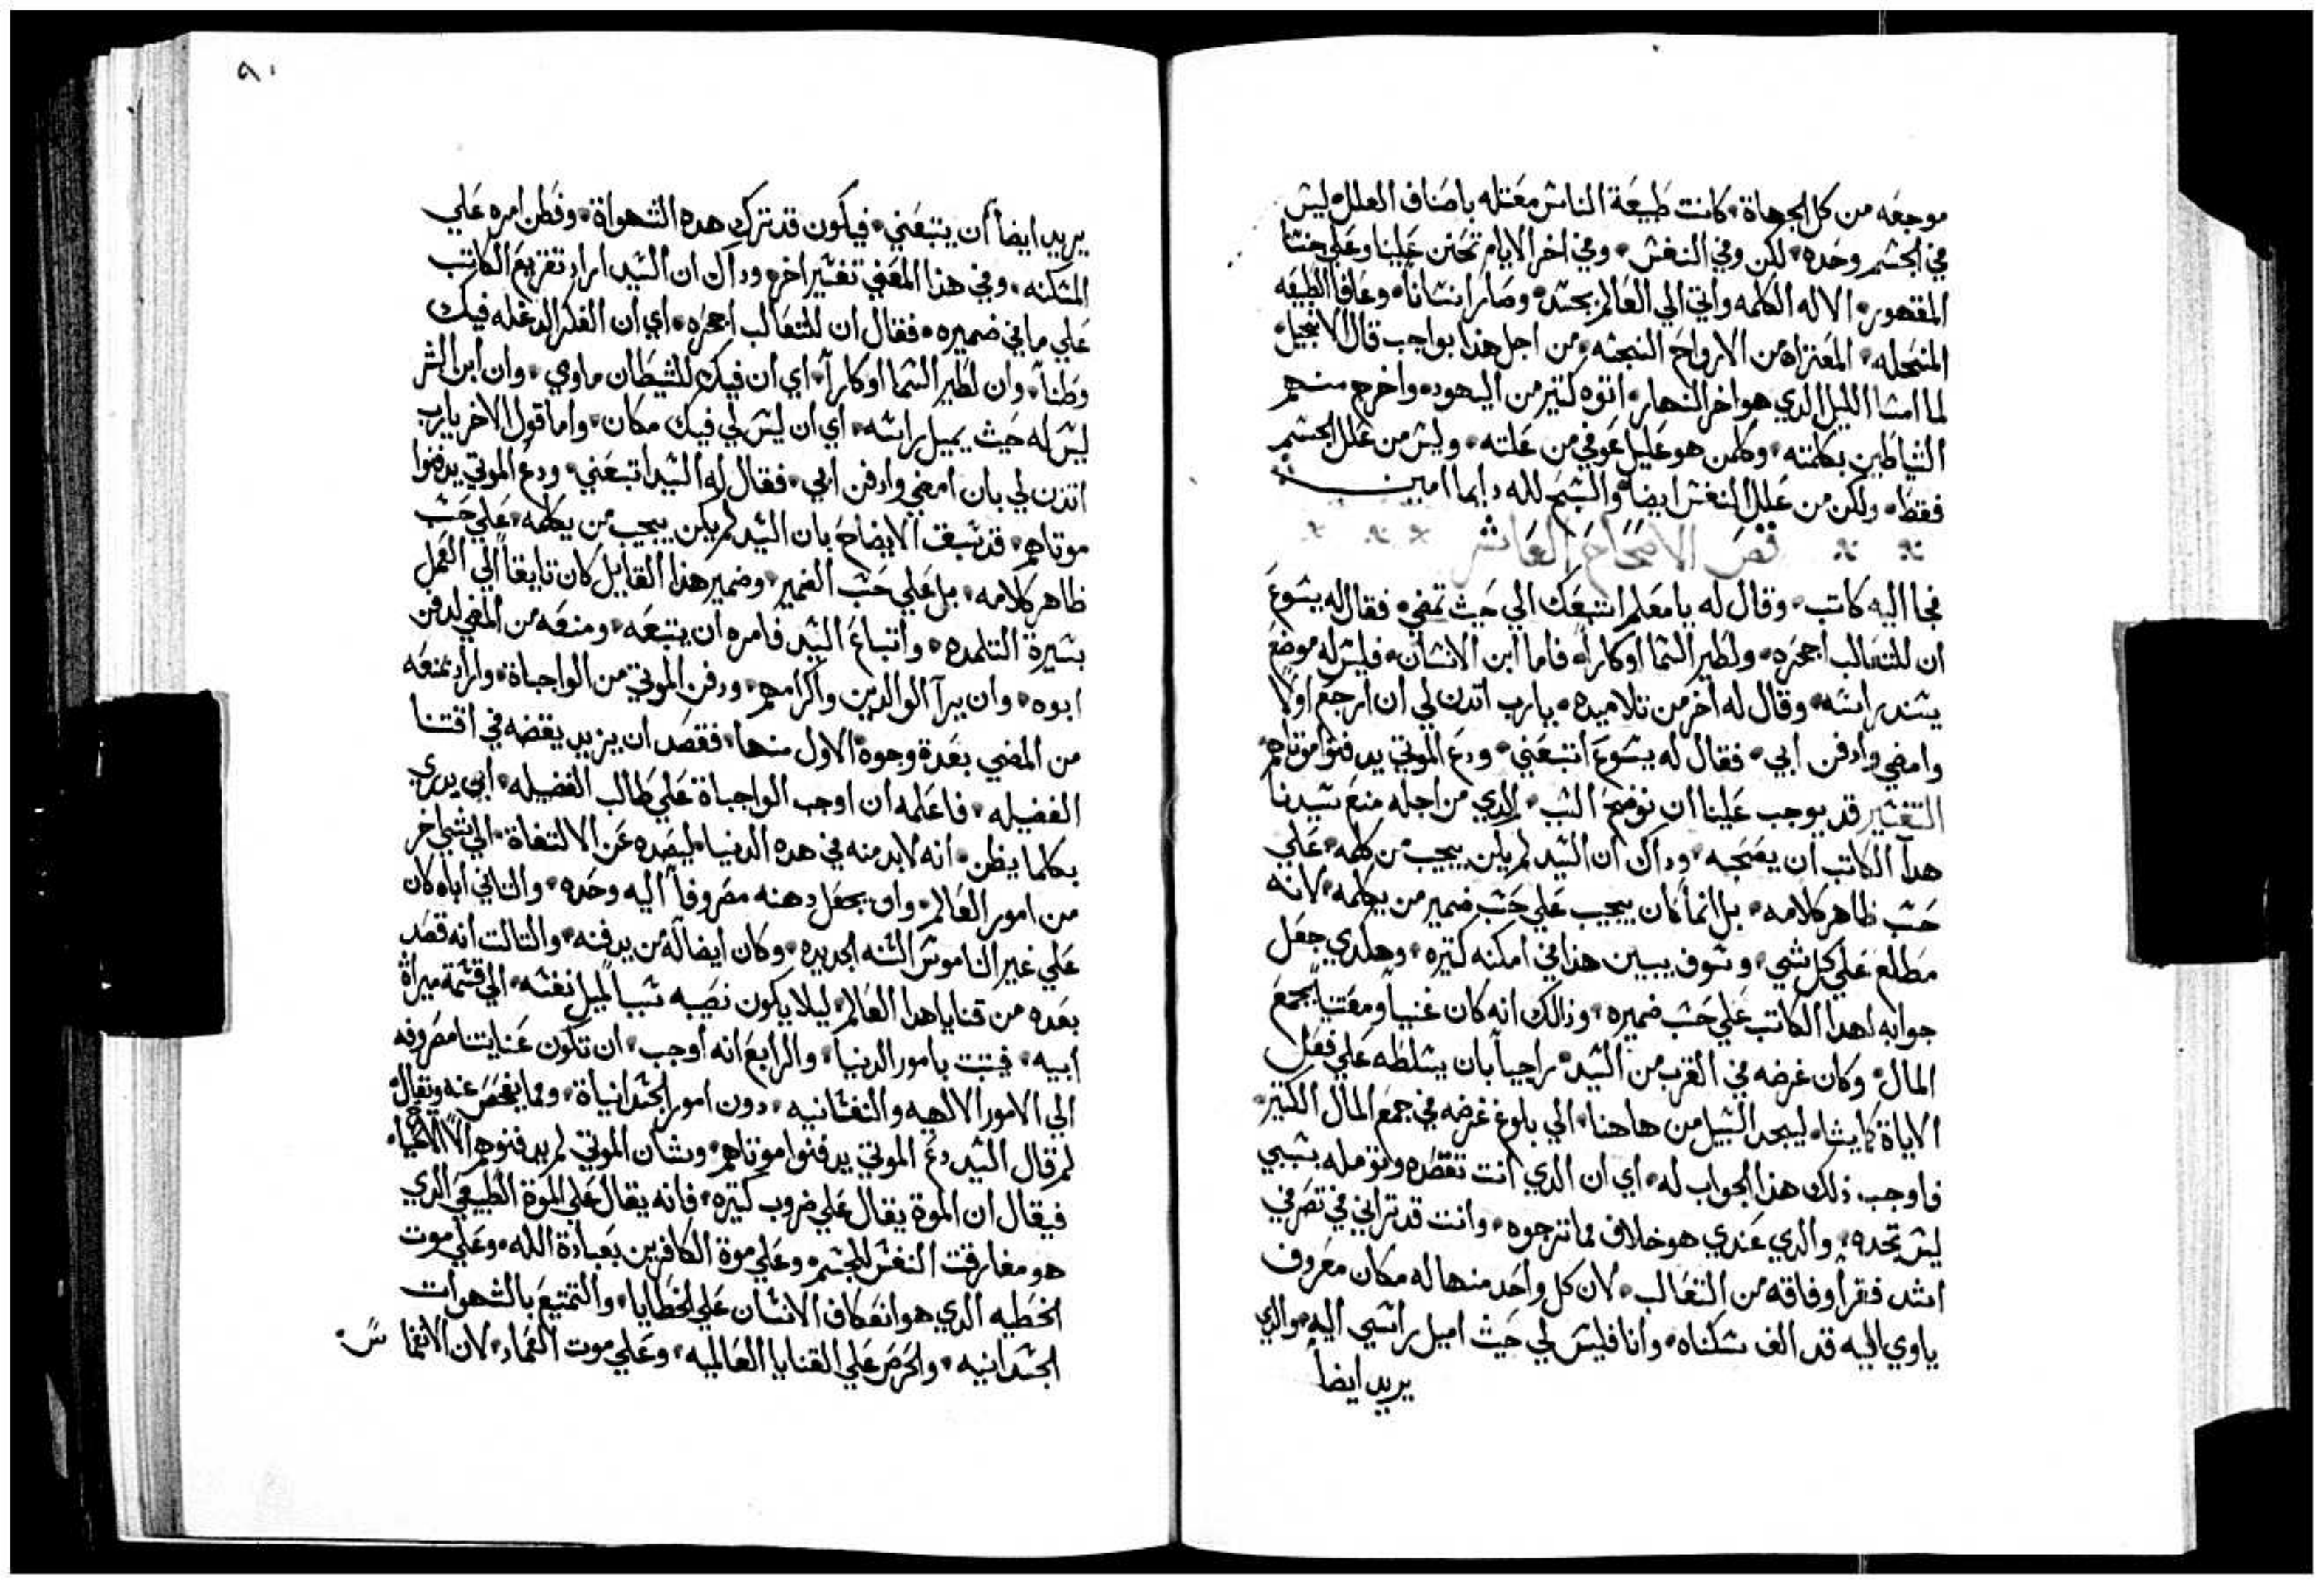 موجعه من كل الجهاة، كانت طبيعة الناس معتله باصناف العلل، ليس
في الجسم وحده، لكن وفي النفس، وفي اخر الايام تحنن علينا وعلي جنسنا
المقهور، الاله الكلمه واتي الي العالم بجسد، وصار انسانا، وعافا الطبيعه
المنحله، المعتراه من الارواح النجسه، من اجل هذا بواجب قال الانجيل
لما امسا الليل الدي هو اخر النهار، اتوه كتير من اليهود، واخرج منهم
الشياطين بكلمته، وكلمن هو عليل عوفي من علته، وليس من علل الجسم
فقط، ولكن من علل النفس ايضا، والسبح لله دايما امين
نص الاصحاح العاشر
فجا اليه كاتب، وقال له يا معلم اتبعك الي حيث تمضي، فقال له يسوع
ان للتعالب اجحره، ولطير السما اوكارا، فاما ابن الانسان، فليس له موضع
يسند راسه، وقال له اخر من تلاميده، يارب اتدن لي ان ارجع اولا
وامضي وادفن ابي، فقال له يسوع اتبعني، ودع الموتي يدفنوا موتاهم
التفسير قد يوجب علينا ان نوضح السبب، الدي من اجله منع سيدنا
هدا الكاتب ان يصحبه، وداك ان السيد لم يكن يجيب من كلمه، علي
حسب ظاهر كلامه، بل انما كان يجيب علي حسب ضمير من يكلمه، لانه
مطلع علي كل شي، وسوف يبين هذا في امكنه كتيره، وهكدي جعل
جوابه لهدا الكاتب علي حسب ضميره، وذالك انه كان غنيا ومقتنيا لجمع
المال، وكان غرضه في القرب من السيد، راجيا بان يسلطه علي فعل
الاياة كما يشا، ليجد السبيل من هاهنا، الي بلوغ غرضه في جمع المال الكتير،
فاوجب ذلك هذا الجواب له، اي ان الدي انت تقصده وتومله بسببي
ليس تجده، والدي عندي هو خلاف ما ترجوه، وانت قد تراني في تصرفي
اشد فقرا وفاقه من التعالب، لان كل واحد منها له مكان معروف
ياوي اليه قد الف سكناه، وانا فليس لي حيث اميل راسي اليه، والدي
يريد ايضا
٩٠
يريد ايضا ان يتبعني، فيكون قد ترك هده الشهواة، وفطن امره علي
المسكنه، وفي هذا المعني تفسير اخر، وداك ان السيد اراد تقريع الكاتب
علي ما في ضميره، فقال ان للتعالب اجحره، اي ان الفكر الدغله فيك
وطنا، وان لطير السما اوكارا، اي ان فيك للشيطان ماوي، وان ابن البشر
ليس له حيث يميل راسه، اي ان ليس لي فيك مكان، واما قول الاخر يارب
اتدن لي بان امضي وادفن ابي، فقال له السيد اتبعني، ودع الموتي يدفنوا
موتاهم، قد سبق الايضاح بان السيد لم يكن يجيب من يكلمه، علي حسب
ظاهر كلامه، بل علي حسب الضمير، وضمير هذا القايل كان تايقا الي العمل
بسيرة التلمده، واتباع السيد فامره ان يتبعه، ومنعه من المضي لدفن
ابوه، وان برا الوالدين واكرامهم، ودفن الموتي من الواجباة، واراد بمنعه
من المضي بعدة وجوه، الاول منها، فقصد ان يزيد بغضه في اقتنا
الفضيله، فاعلمه ان اوجب الواجباة علي طالب الفضيله، ابي يدري
بكلما يظن، انه لابد منه في هده الدنيا، ليصده عن الالتفاة، الي شي اخر
من امور العالم، وان يجعل دهنه مصروفا اليه وحده، والتاني اباه كان
علي غير الناموس السنه الجديده، وكان ايضا له من يدفنه، والتالت انه قصد
بعده من قنايا هدا العالم، ليلا يكون نصيبه سببا لميل نفسه، الي قسمة ميراة
ابيه، فيتبت بامور الدنيا، والرابع انه اوجب، ان تكون عنايتنا مصروفه
الي الامور الالهيه والنفسانيه، دون امور الجسدانياة، ومما يفحص عنه ويقال
لم قال السيد دع الموتي يدفنوا موتاهم، وشان الموتي لم يدفنوهم الا الاحيا،
فيقال ان الموة يقال علي ضروب كتيره، فانه يقال علي الموة الطبيعي الدي
هو مفارقت النفس للجسم، وعلي موة الكافرين بعبادة الله، وعلي موت
الخطيه الدي هو انعكاف الانسان علي الخطايا، والتمتيع بالشهوات
الجسدانيه، والحرص علي القنايا العالميه، وعلي موت العماد، لان الانغماس